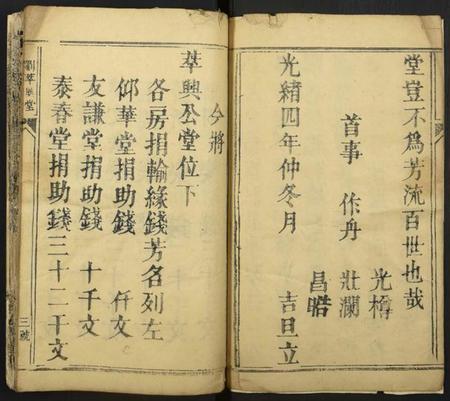 堂豈不爲芳流百世也哉
光楕
首事 作舟 壯瀾
昌晧
光緒四年仲冬月 吉旦立
今將
萃興公堂位下
各房捐輸緣錢芳名列左
仰華堂捐助錢 仟文
友謙堂捐助錢 十千文
泰春堂捐助錢三十二千文
三號